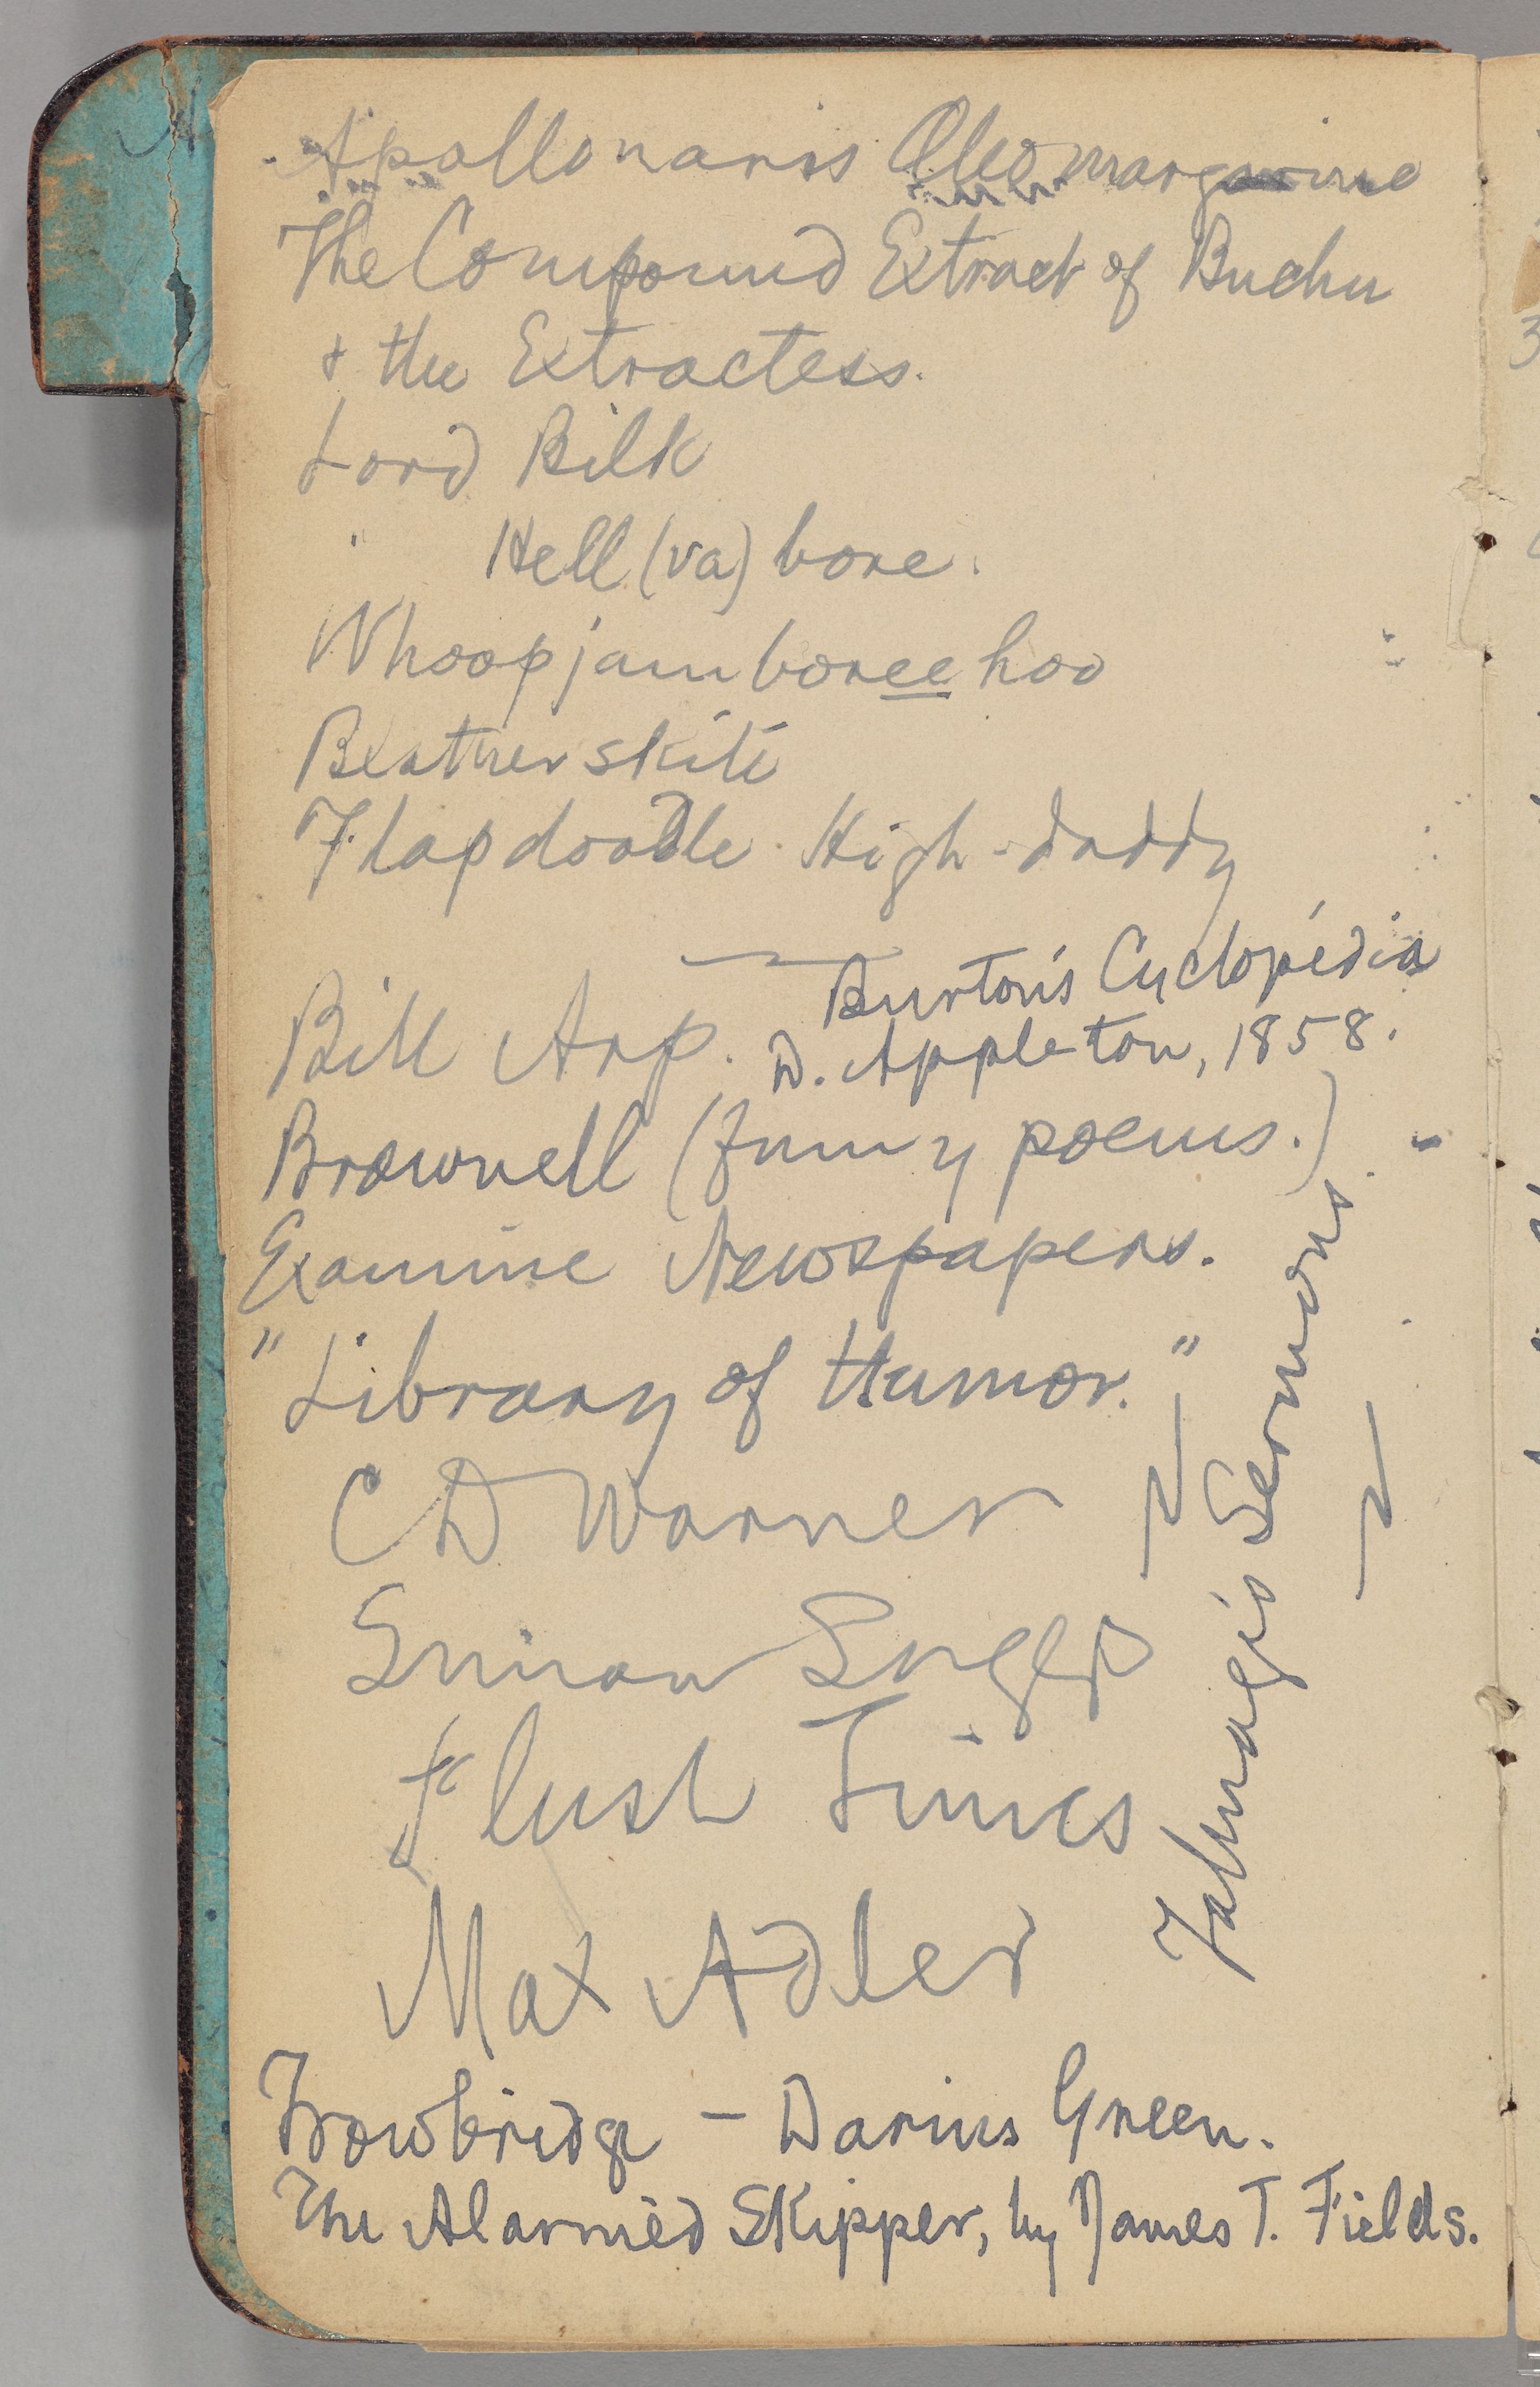 Apollonaris Oleomargarine
The Compound Extract of Buchu
& the Extractess.
Lord Bilk
" Hell(va)bore.
Whoopjamboreehoo
Blatherskite
Flapdoodle High-daddy
Burton's Cyclopedia
Bill Arp. D. Appleton, 1858.
Brownell (funny poems.)
Examine Newspapers.
"Library of Humor."
C D Warner
Simon Suggs
Flush Times
Max Adler
Talmage's Sermons.
Trowbridge - Darius Green.
The Alarmed Skipper, by James T. Fields.